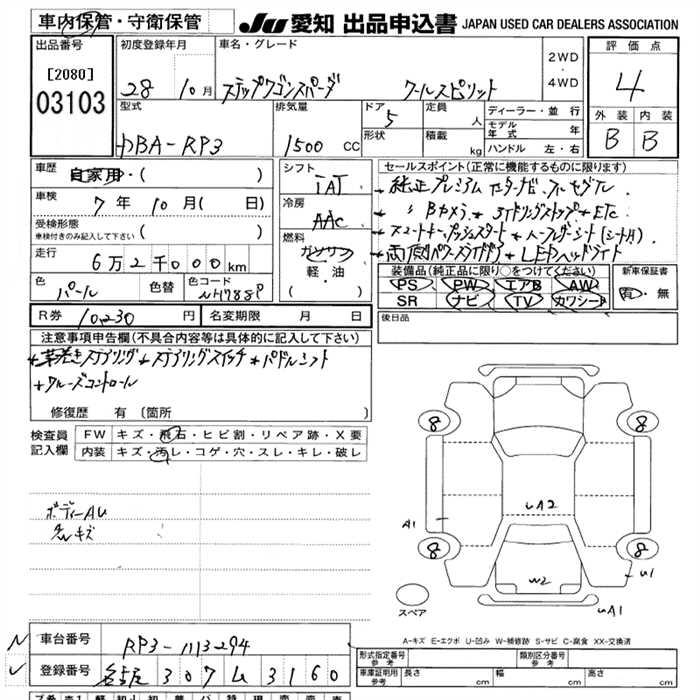 車内保管・守衛保管
JU 愛知 出品申込書 JAPAN USED CAR DEALERS ASSOCIATION
出品番号
[2080]
03103
初度登録年月
28 年 10 月
車名・グレード
ステップワゴンスパーダ クールスピリット
2WD
・
4WD
評価点
4
外装 内装
B B
型式
DBA-RP3
排気量
1500 cc
ドア
5
形状
定員
人
積載
kg
ディーラー・並行
モデル年式 年
ハンドル 左・右
車歴
自家用・( )
車検
7 年 10 月( 日)
受検形態
車検付きのみ記入して下さい ( )
走行
6万2千000km
色
パール
色替
色コード
NH788P
シフト
IAT
冷房
AAC
燃料
ガソリン
軽・油
( )
セールスポイント(正常に機能するものに限ります)
*純正プレミアムナビ・フルセグTV
" Bカメラ *アイドリングストップ *ETC
*スマートキー・プッシュスタート *ハーフレザーシート(シートH)
*両側パワースライドドア *LEDヘッドライト
装備品(純正品に限り○をつけてください)
PS PW エアB AW
SR ナビ TV カワシート
新車保証書
有・無
R券 10,230 円
名変期限 月 日
後日品
注意事項申告欄(不具合内容等は具体的に記入して下さい)
*革巻きステアリング *ステアリングスイッチ *パドルシフト
*クルーズコントロール
修復歴 有 〔箇所 〕
検査員
記入欄
FW キズ・飛石・ヒビ割・リペア跡・X要
内装 キズ・汚レ・コゲ・穴・スレ・キレ・破レ
ボディーAU
小キズ
8 8
UA2
A1
8 8
W2
U1
UA1
スペア
A-キズ E-エクボ U-凹み W-補修跡 S-サビ C-腐食 XX-交換済
車台番号
RP3-1113294
登録番号
名古屋 307 ム 3160
形式指定番号
参考
類別区分番号
参考
車庫証明用
参考
長さ cm
幅 cm
高さ cm